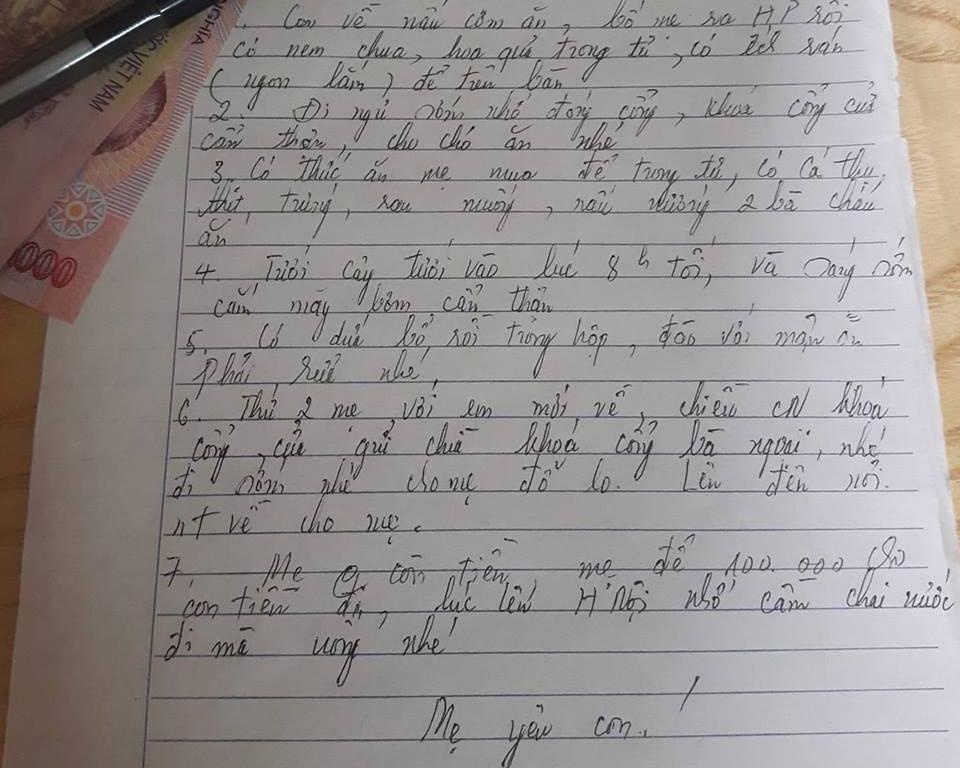 NGHĨA
VIỆT NAM
000
1. Con về nấu cơm ăn, bố mẹ ra HP rồi
có nem chua, hoa quả trong tủ, có ếch rán
(ngon lắm) để trên bàn
2. Đi ngủ sớm nhớ đóng cổng, khoá cổng cửa
cẩn thận, cho chó ăn nhé
3. Có thức ăn mẹ mua để trong tủ, có cá thu,
thịt, trứng, rau muống, nấu nướng 2 bà cháu
ăn
4. Tưới cây tưới vào lúc 8h tối, và sáng sớm
cắm máy bơm cẩn thận
5. Có dưa bổ rồi trong hộp, đào với mận ăn
phải rửa nhé,
6. Thứ 2 mẹ với em mới về, chiều CN khoá
cổng, cửa gửi chìa khoá cổng bà ngoại, nhớ
đi sớm nhé cho mẹ đỡ lo. Lên đến nơi
nt về cho mẹ.
7. Mẹ o còn tiền mẹ để 100.000 cho
con tiền đi, lúc lên H Nội nhớ cầm chai nước
đi mà uống nhé
Mẹ yêu con!